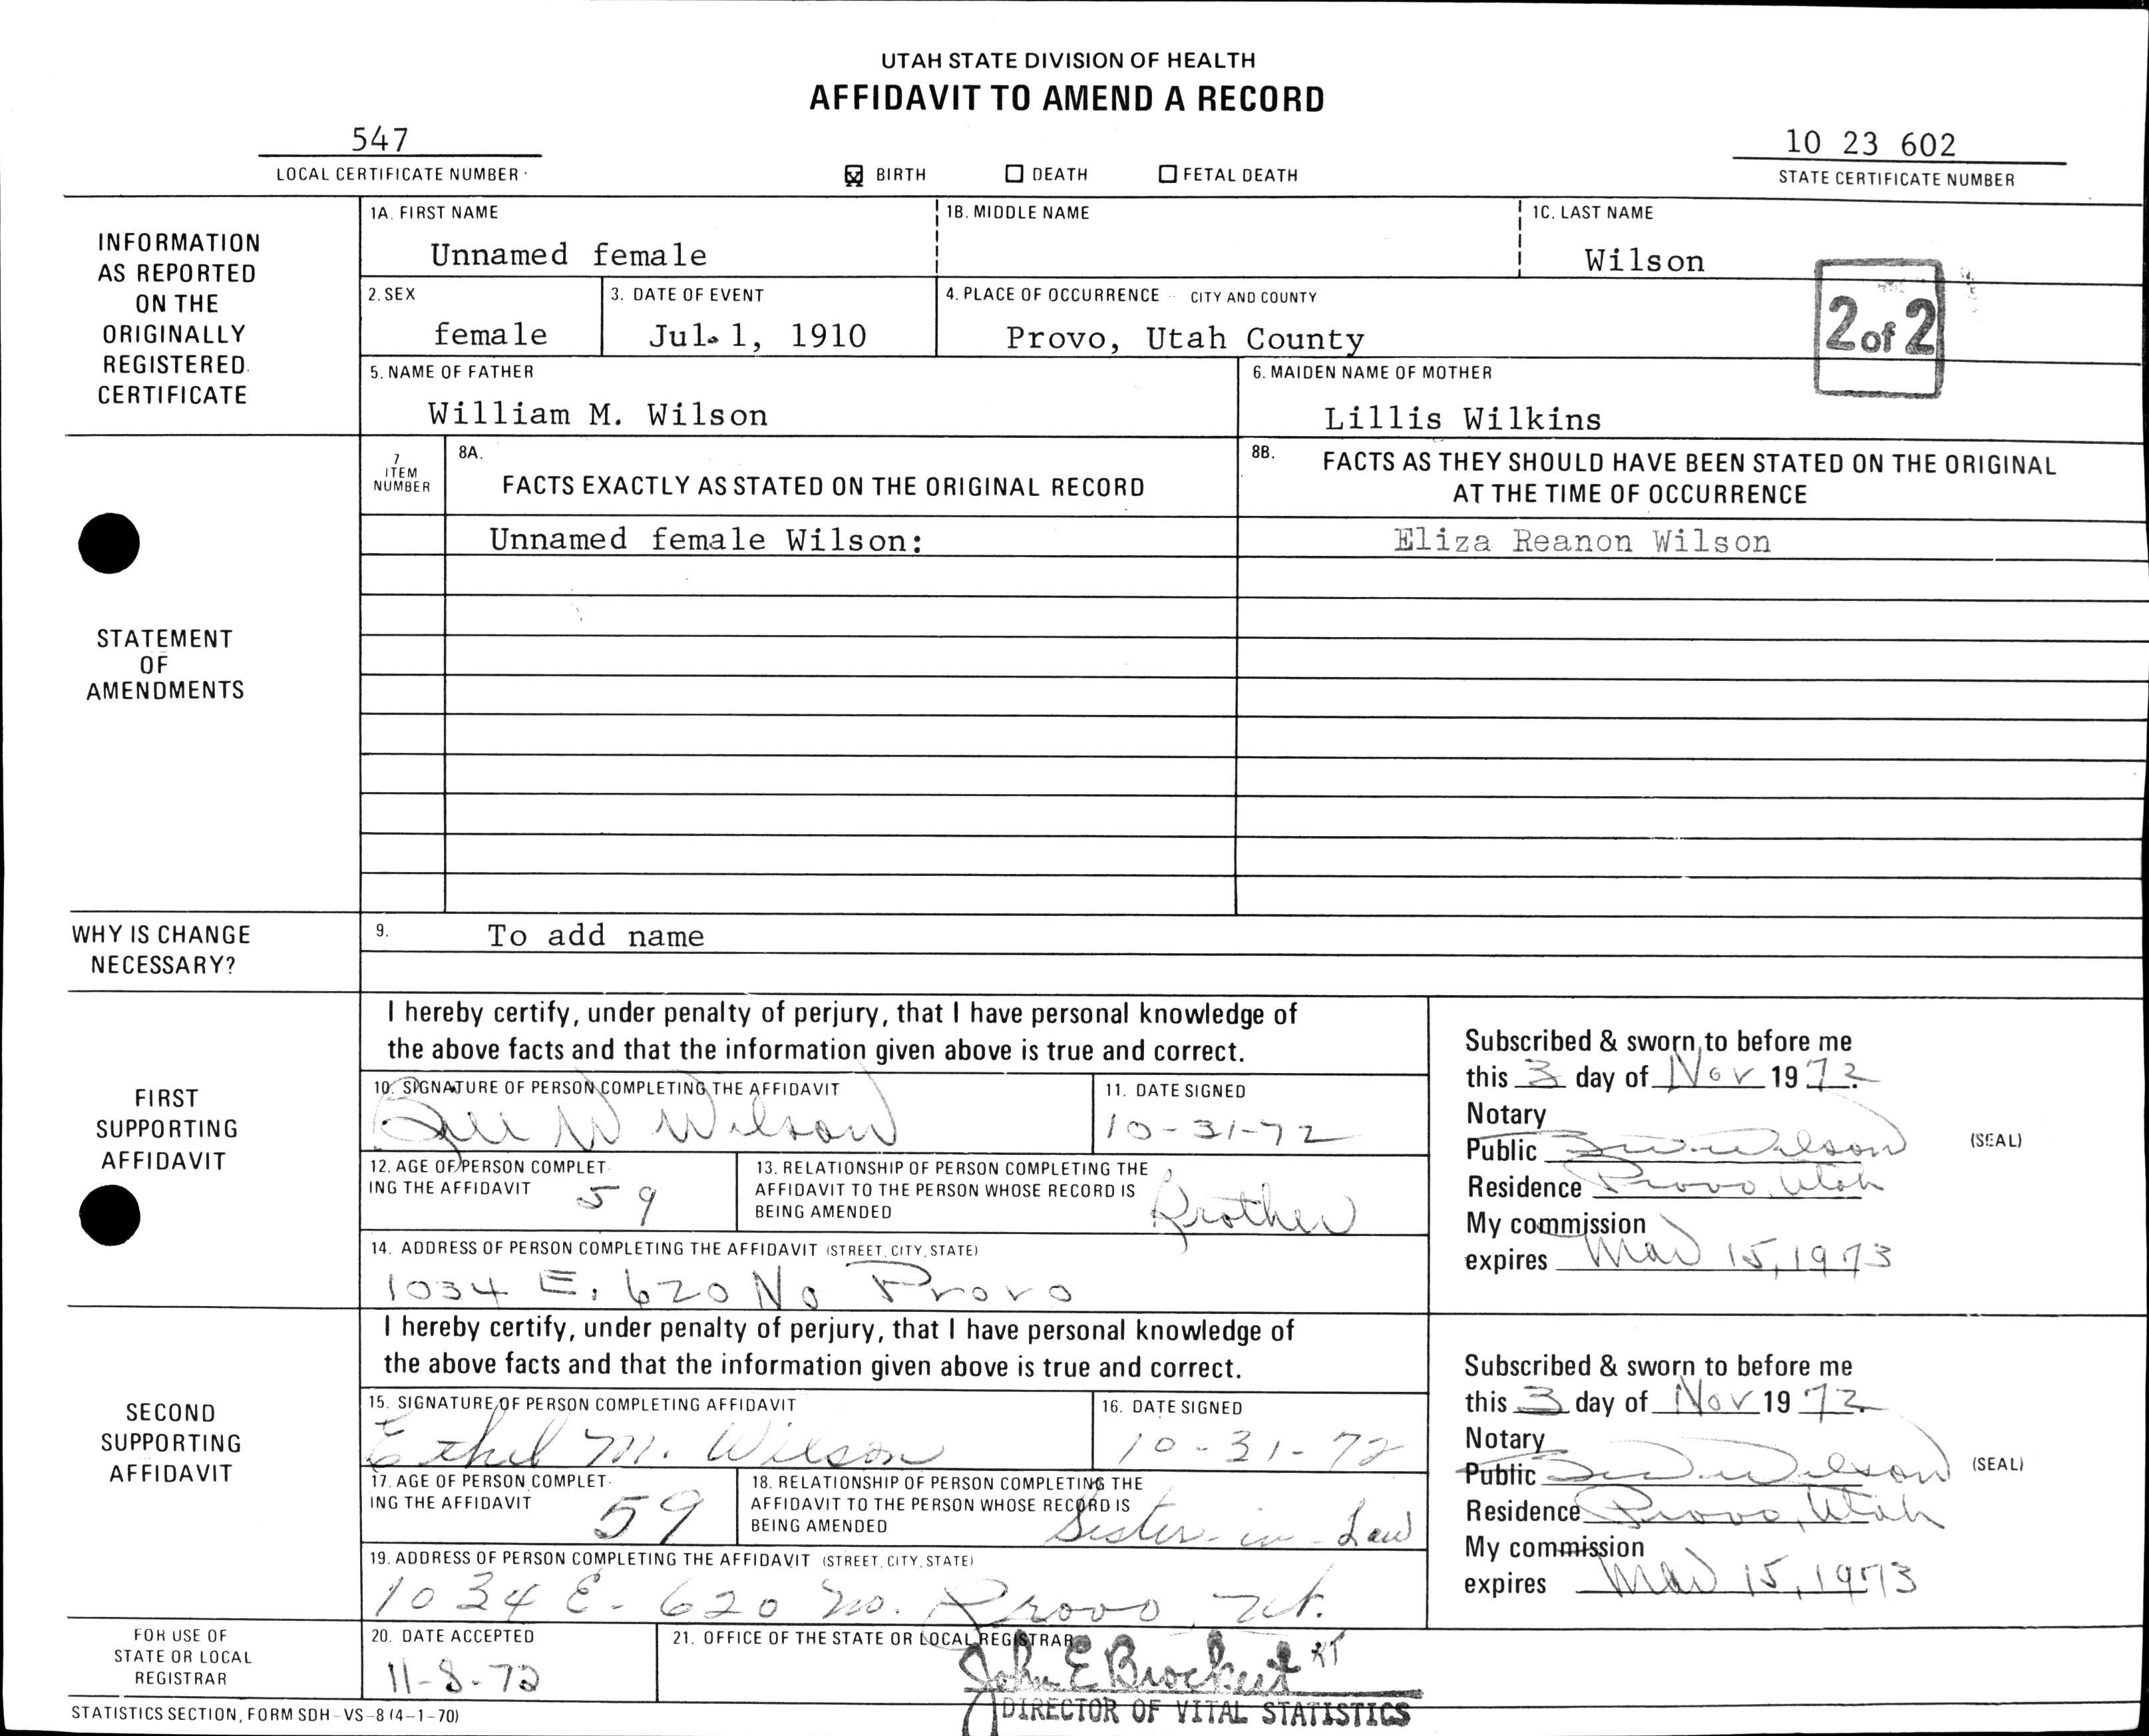 UTAH STATE DIVISION OF HEALTH
AFFIDAVIT TO AMEND A RECORD
547
10 23 602
LOCAL CERTIFICATE NUMBER
☒ BIRTH ☐ DEATH ☐ FETAL DEATH
STATE CERTIFICATE NUMBER
INFORMATION
AS REPORTED
ON THE
ORIGINALLY
REGISTERED
CERTIFICATE
1A. FIRST NAME
Unnamed female
1B. MIDDLE NAME
1C. LAST NAME
Wilson
2. SEX
female
3. DATE OF EVENT
Jul. 1, 1910
4. PLACE OF OCCURRENCE - CITY AND COUNTY
Provo, Utah County
2 of 2
5. NAME OF FATHER
William M. Wilson
6. MAIDEN NAME OF MOTHER
Lillis Wilkins
STATEMENT
OF
AMENDMENTS
7
ITEM
NUMBER
8A.
FACTS EXACTLY AS STATED ON THE ORIGINAL RECORD
8B.
FACTS AS THEY SHOULD HAVE BEEN STATED ON THE ORIGINAL
AT THE TIME OF OCCURRENCE
Unnamed female Wilson:
Eliza Reanon Wilson
WHY IS CHANGE
NECESSARY?
9.
To add name
FIRST
SUPPORTING
AFFIDAVIT
I hereby certify, under penalty of perjury, that I have personal knowledge of
the above facts and that the information given above is true and correct.
10. SIGNATURE OF PERSON COMPLETING THE AFFIDAVIT
Bill W Wilson
11. DATE SIGNED
10-31-72
12. AGE OF PERSON COMPLET-
ING THE AFFIDAVIT
59
13. RELATIONSHIP OF PERSON COMPLETING THE
AFFIDAVIT TO THE PERSON WHOSE RECORD IS
BEING AMENDED
Brother
14. ADDRESS OF PERSON COMPLETING THE AFFIDAVIT (STREET, CITY, STATE)
1034 E. 620 No Provo
Subscribed & sworn to before me
this 3 day of Nov 1972
Notary
Public Wilson
(SEAL)
Residence Provo, Utah
My commission
expires Mar 15, 1973
SECOND
SUPPORTING
AFFIDAVIT
I hereby certify, under penalty of perjury, that I have personal knowledge of
the above facts and that the information given above is true and correct.
15. SIGNATURE OF PERSON COMPLETING AFFIDAVIT
Ethel M. Wilson
16. DATE SIGNED
10-31-72
17. AGE OF PERSON COMPLET-
ING THE AFFIDAVIT
59
18. RELATIONSHIP OF PERSON COMPLETING THE
AFFIDAVIT TO THE PERSON WHOSE RECORD IS
BEING AMENDED
Sister-in-Law
19. ADDRESS OF PERSON COMPLETING THE AFFIDAVIT (STREET, CITY, STATE)
1034 E. 620 No. Provo, Ut.
Subscribed & sworn to before me
this 3 day of Nov 1972
Notary
Public Wilson
(SEAL)
Residence Provo, Utah
My commission
expires Mar 15, 1973
FOR USE OF
STATE OR LOCAL
REGISTRAR
20. DATE ACCEPTED
11-8-72
21. OFFICE OF THE STATE OR LOCAL REGISTRAR
John E Brockert KT
DIRECTOR OF VITAL STATISTICS
STATISTICS SECTION, FORM SDH-VS-8 (4-1-70)